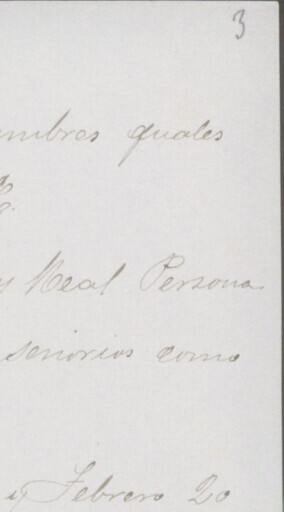 3
umbres quales
y Real Persona
senorios como
y Febrero 20